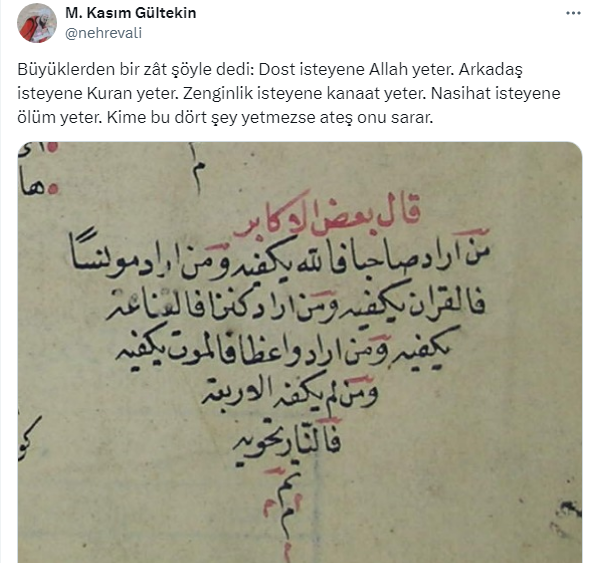 M. Kasım Gültekin
@nehrevali
Büyüklerden bir zât şöyle dedi: Dost isteyene Allah yeter. Arkadaş
isteyene Kuran yeter. Zenginlik isteyene kanaat yeter. Nasihat isteyene
ölüm yeter. Kime bu dört şey yetmezse ateş onu sarar.
م
ها
قال بعض الاكابر
من اراد صاحبا فالله يكفيه ومن اراد مونسًا
فالقران يكفيه ومن اراد كنزا فالقناعة
يكفيه ومن اراد واعظا فالموت يكفيه
ومن لم يكفه الاربعة
فالنار تحويه
تم
م
كو